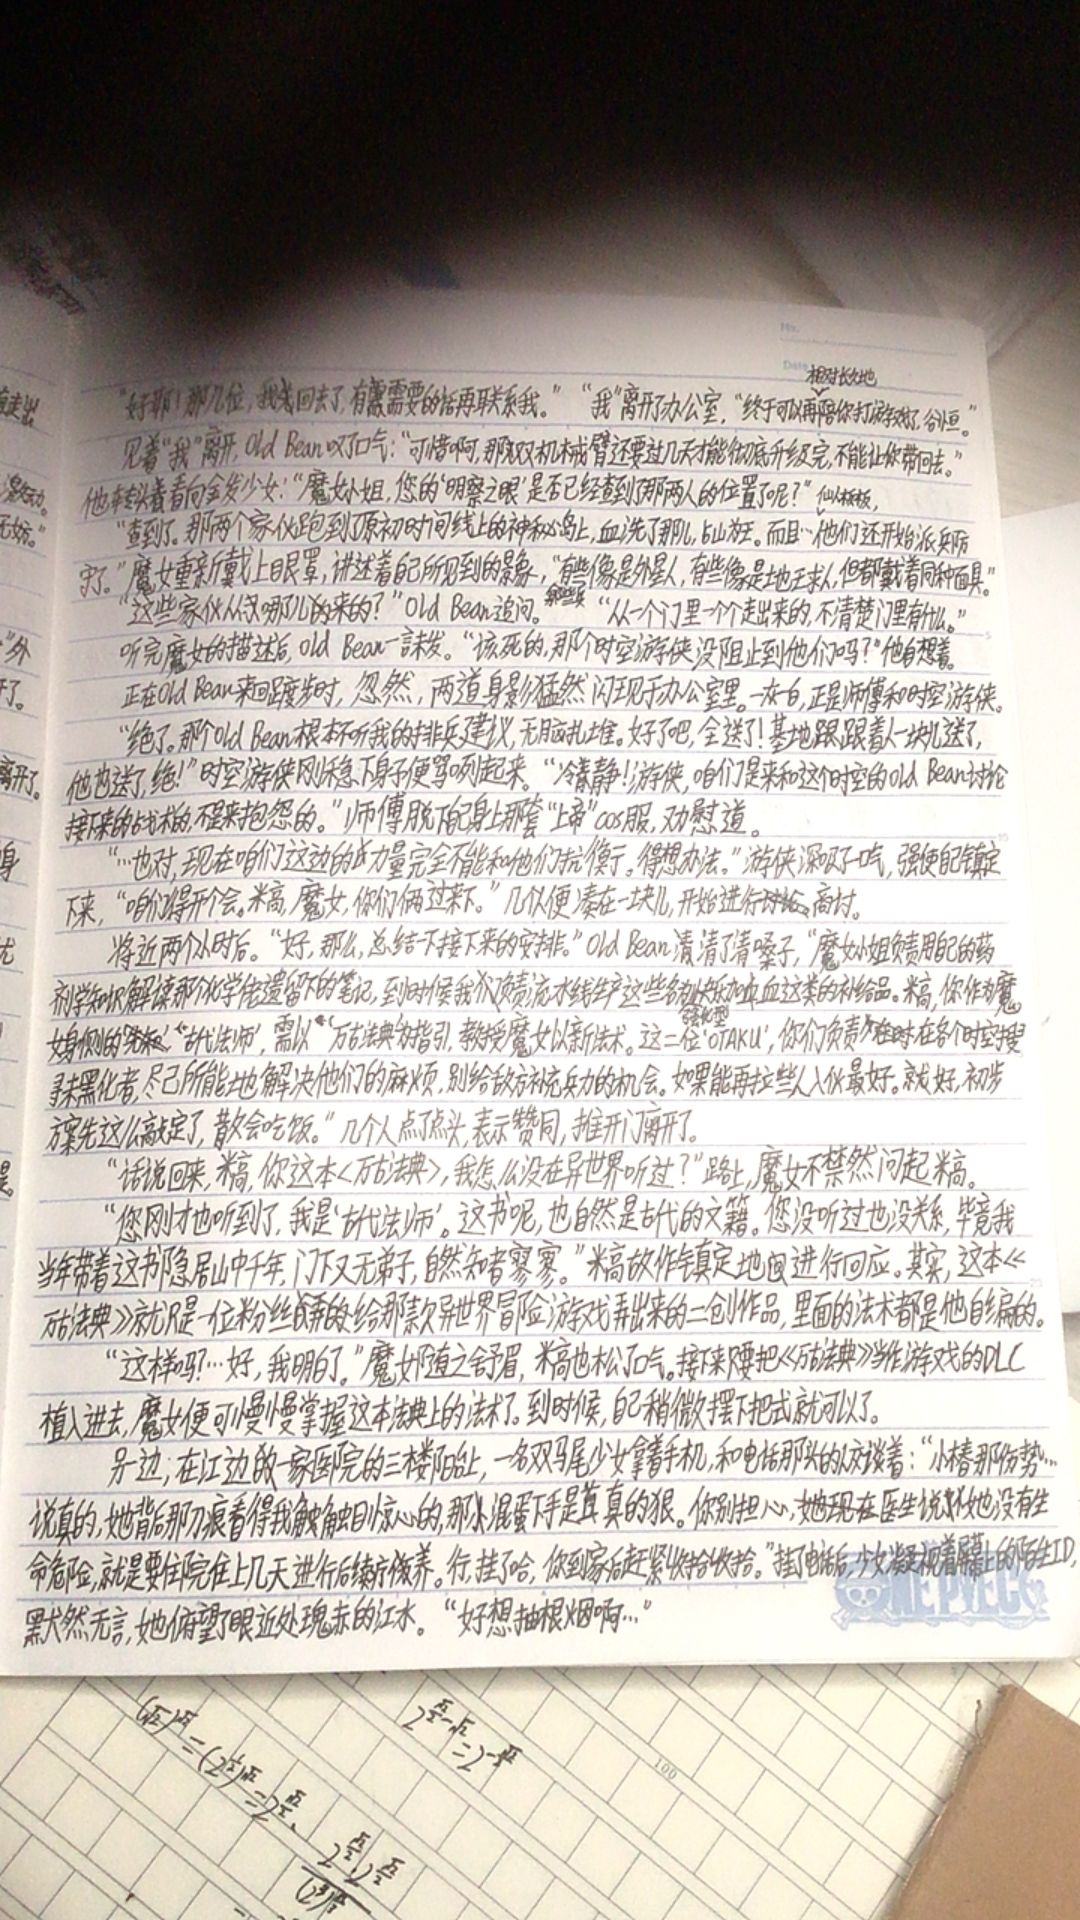 No.
Date
相对长久地
"好耶！那几位，我先回去了，有需要的话再联系我。" "我"离开了办公室，"终于可以再陪你打游戏了，谷恒。"
见着"我"离开，Old Bean叹了口气："可惜啊，那双机械臂还要过几天才能彻底升级完，不能让你带回去。"
他转头看向金发少女："魔女小姐，您的'明察之眼'是否已经查到了那两人的位置了呢？"
"查到了。那两个家伙跑到了原初时间线上的神秘岛上，血洗了那儿，占山为王。而且…他们还开始派兵防
守了。"魔女重新戴上眼罩，讲述着自己所见到的景象，"有些像是外星人，有些像是地球人，但都戴着同种面具。"
"这些家伙从哪儿来的？"Old Bean追问。 "从一个门里一个个走出来的，不清楚门里有什么。"
听完魔女的描述后，Old Bean一言未发。"该死的，那个时空游侠没阻止到他们吗？"他自想着。
正在Old Bean来回踱步时，忽然，两道身影猛然闪现于办公室里。一灰一白，正是师傅和时空游侠。
"绝了。那个Old Bean根本不听我的排兵建议，无脑扎堆。好了吧，全送了！基地跟着人一块儿送了，
他也送了，绝！"时空游侠刚稳下身子便骂咧起来。"冷静！游侠，咱们是来和这个时空的Old Bean讨论
接下来的战术的，不是来抱怨的。"师傅脱下自己身上那套"上帝"cos服，劝慰道。
"…也对，现在咱们这边的力量完全不能和他们抗衡。得想办法。"游侠深吸了一口气，强使自己镇定
下来，"咱们得开个会。米高，魔女，你们俩过来下。"几人便凑在一块儿，开始进行商讨。
将近两个小时后。"好，那么，总结一下接下来的安排。"Old Bean清了清嗓子，"魔女小姐负责用自己的药
剂学知识解读那个化学佬遗留下的笔记，到时候我们负责流水线生产这些各加血这类的补给品。米高，你作为魔
强化型
女身侧的'古代法师'，需以'万古法典'为指引，教授魔女以新法术。这二位'OTAKU'，你们负责在各个时空搜
寻未黑化者，尽己所能地解决他们的麻烦，别给敌方补充兵力的机会。如果能再拉些人入伙最好。就好，初步
方案先这么敲定了，散会吃饭。"几个人点了点头，表示赞同，推开门离开了。
"话说回来，米高，你这本《万古法典》，我怎么没在异世界听过？"路上，魔女不禁然问起米高。
"您刚才也听到了，我是'古代法师'。这书呢，也自然是古代的文籍。您没听过也没关系，毕竟我
当年带着这书隐居山中千年，门下又无弟子，自然知者寥寥。"米高故作镇定地进行回应。其实，这本《
万古法典》就只是一位粉丝给那款异世界冒险游戏弄出来的二创作品，里面的法术都是他自己编的。
"这样吗？…好，我明白了。"魔女随之舒眉，米高也松了口气。接下来只要把《万古法典》当作游戏的DLC
植入进去，魔女便可慢慢掌握这本法典上的法术了。到时候，自己稍微摆下把式就可以了。
另一边，在江边的一家医院的三楼阳台上，一名双马尾少女拿着手机，和电话那头的人交谈着："小椿那伤势…
说真的，她背后那刀痕看得我触目惊心的，那混蛋下手是真的狠。你别担心，她现在医生说她没有生
命危险，就是要住院住上几天进行后续疗养。行，挂了哈，你到家后赶紧收拾收拾。"挂了电话后，少女凝视着屏幕上的陌生ID，
默然无言，她俯望了眼近处瑰赤的江水。"好想抽根烟啊…"
ONE PIECE
100